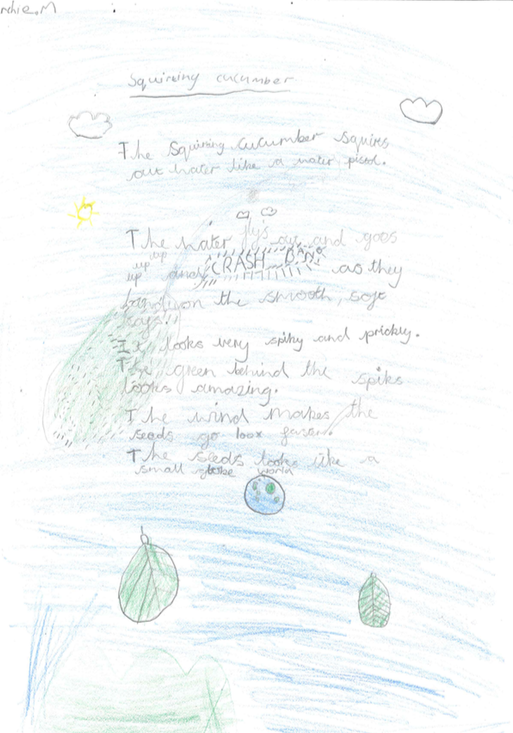 rchie.M
Squirting cucumber
The Squirting cucumber squirts
out water like a water pistol.
The water flys out and goes
up up
up and CRASH BANG as they
land on the smooth, soft
It looks very spiky and prickly.
The green behind the spiks
looks amazing.
The wind makes the
seeds go
The seeds looks like a
small world